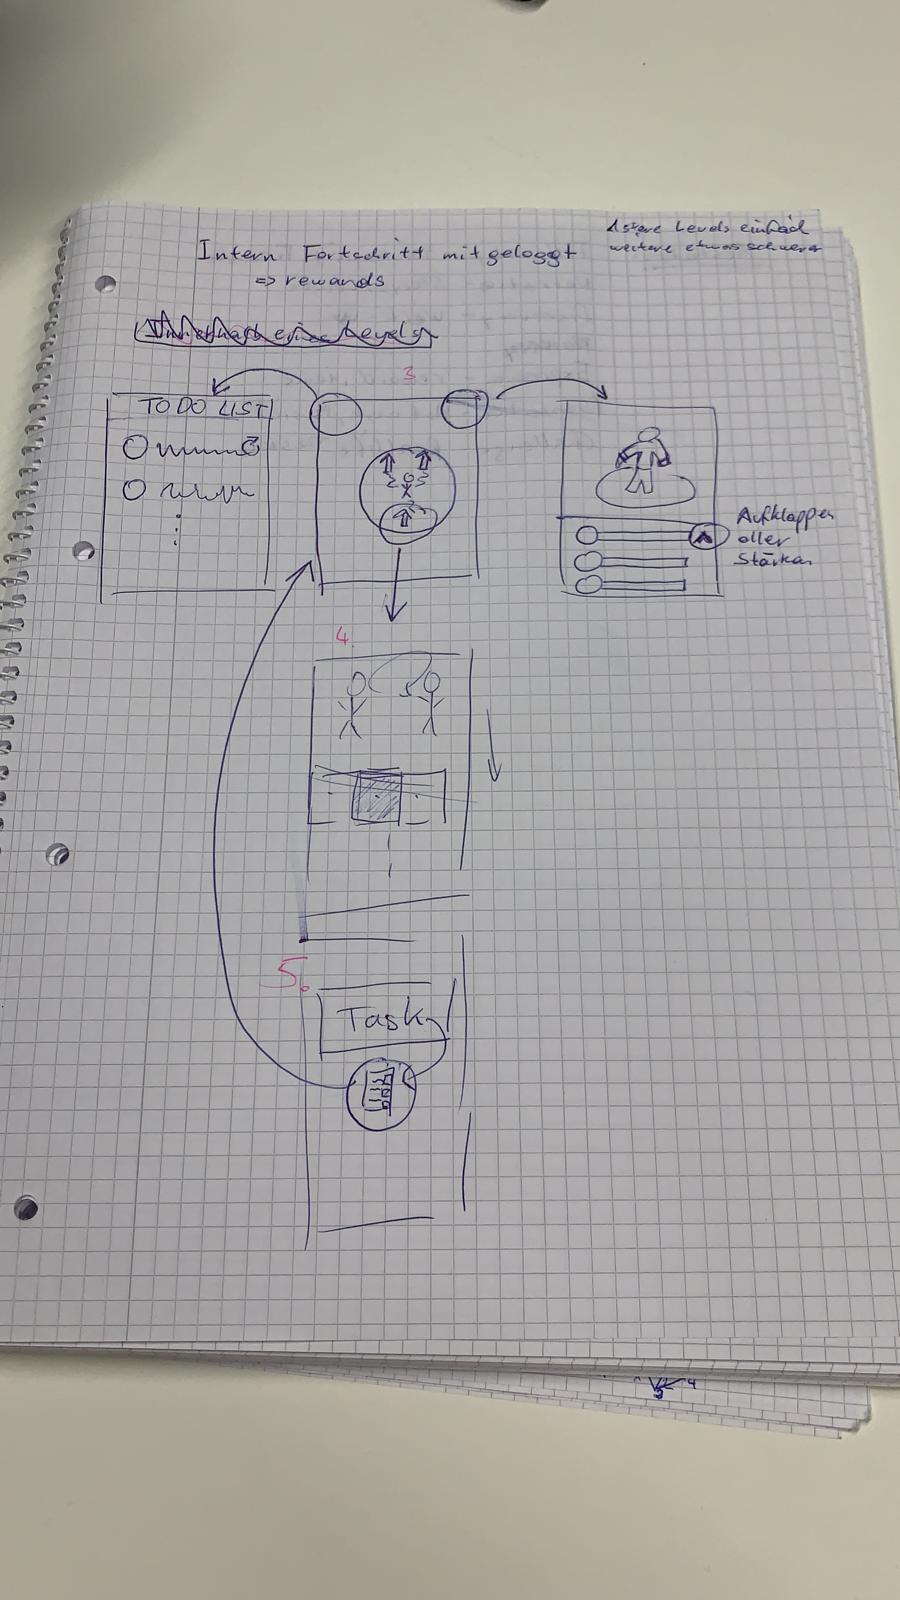 1stere Levels einfach
weitere etwas schwerer
Intern Fortschritt mitgeloggt
=> rewards
3
TO DO LIST
Aufklappen
aller
Stärken
4.
5.
Task